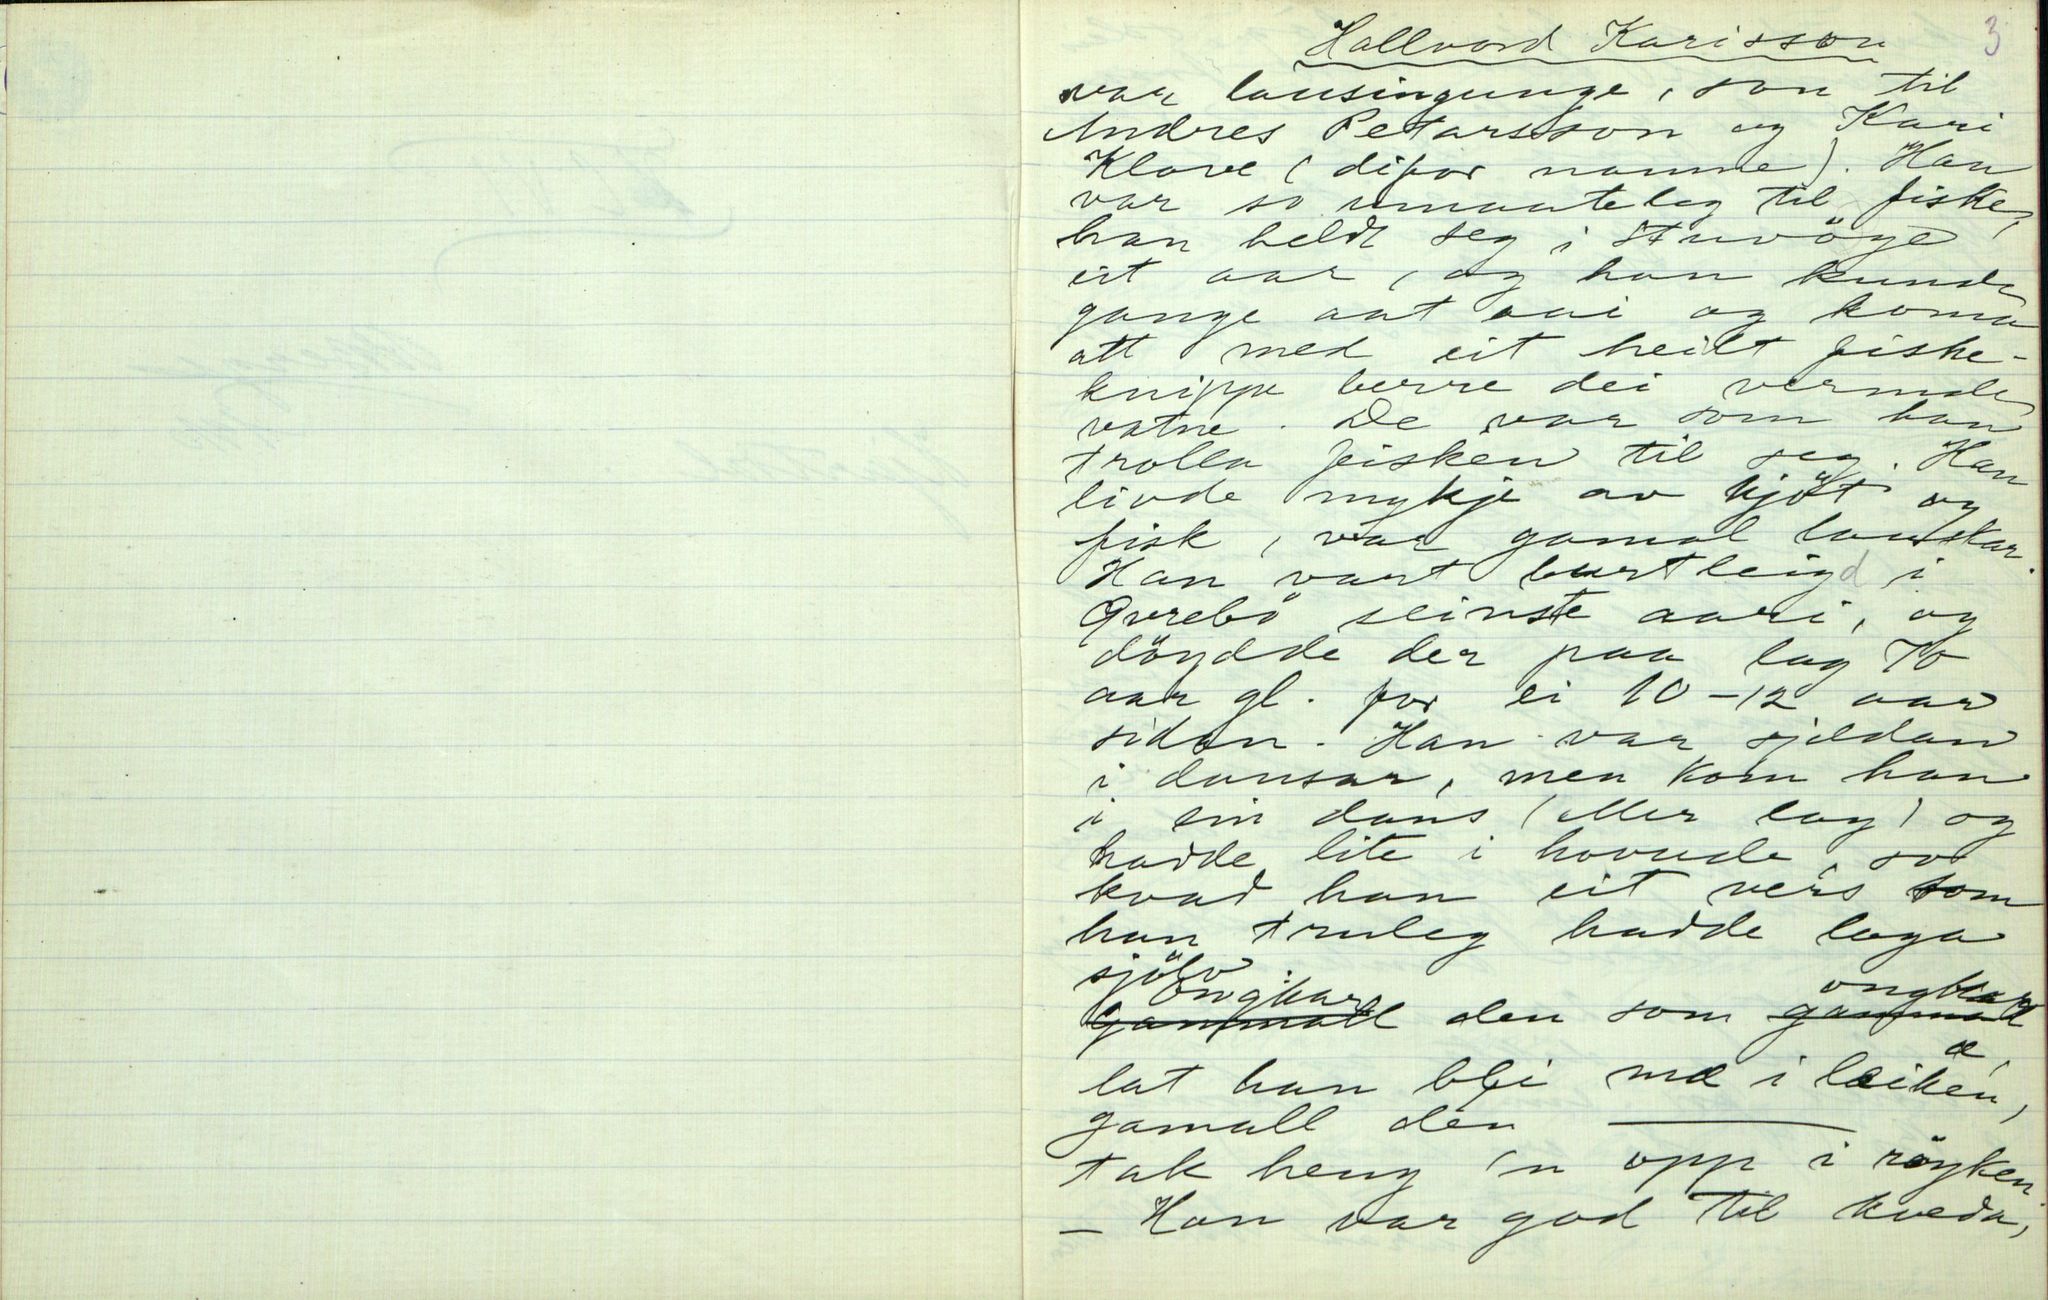 3
Hallvord Karisson
var lausingunge, son til
Andres Petarsson og Kari
Klove (difor namne). Han
var so umaateleg til fiske,
han heldt seg i Stuvöye
eit aar, og han kunde
gange aat aai og koma
att med eit heilt fiske-
knippe berre dei vermde
vatne. De var som han
trolla fisken til seg. Han
livde mykje av kjöt og
fisk, var gamal lauskar.
Han vart burtleigd i
Øvrebö seinste aari, og
döydde der paa lag 70
aar gl. for ei 10-12 aar
sidan. Han var sjeldan
i dansar, men kom han
i ein dans (eller lag) og
hadde lite i hovude, so
kvad han eit vers som
han truleg hadde laga
sjölv
Ongkar ongkar
gammall den som gammall
lat han bli me i læiken,
gamall den
tak heng 'n opp i röyken.
– Han var god til kveda,